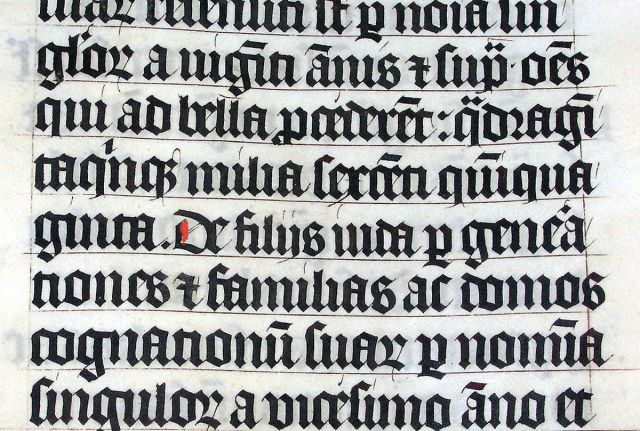 suaꝝ recensiti st̄ ꝑ noīa sin
gloꝝ a uigīti ānis ⁊ sup̄ · oēs
qui ad bella ꝓcederēt : qͣdragī
taqͥnqꝫ milia sexcēti quīqua
ginta. De filijs iuda ꝑ geneͣa
tiones ⁊ familias ac domos
cognationū suaꝝ ꝑ nomīa
singuloꝝ a vicesimo āno et